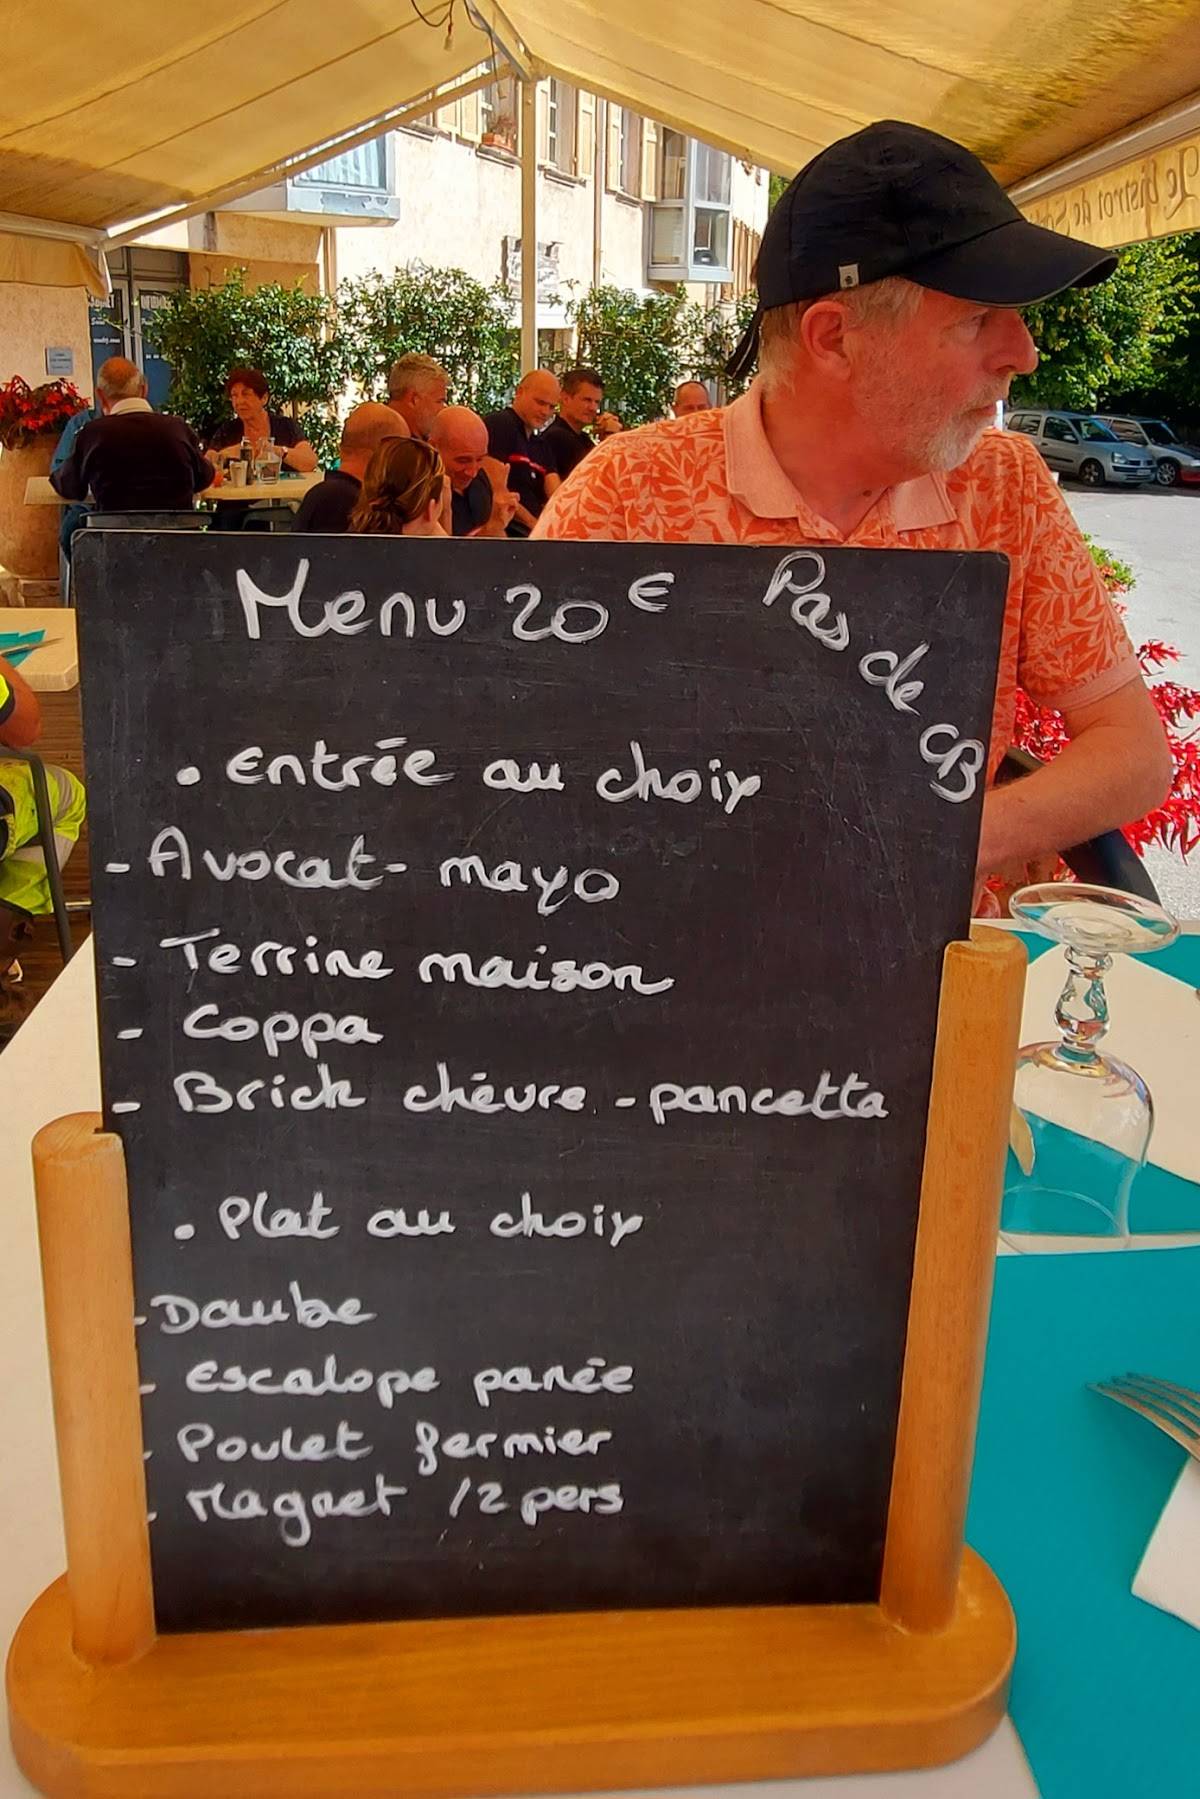 Le bistrot de
Menu 20 €
Pas de CB
• Entrée au choix
- Avocat - mayo
- Terrine maison
- Coppa
- Brick chèvre - pancetta
• Plat au choix
- Daube
- Escalope panée
- Poulet fermier
- Magret /2 pers